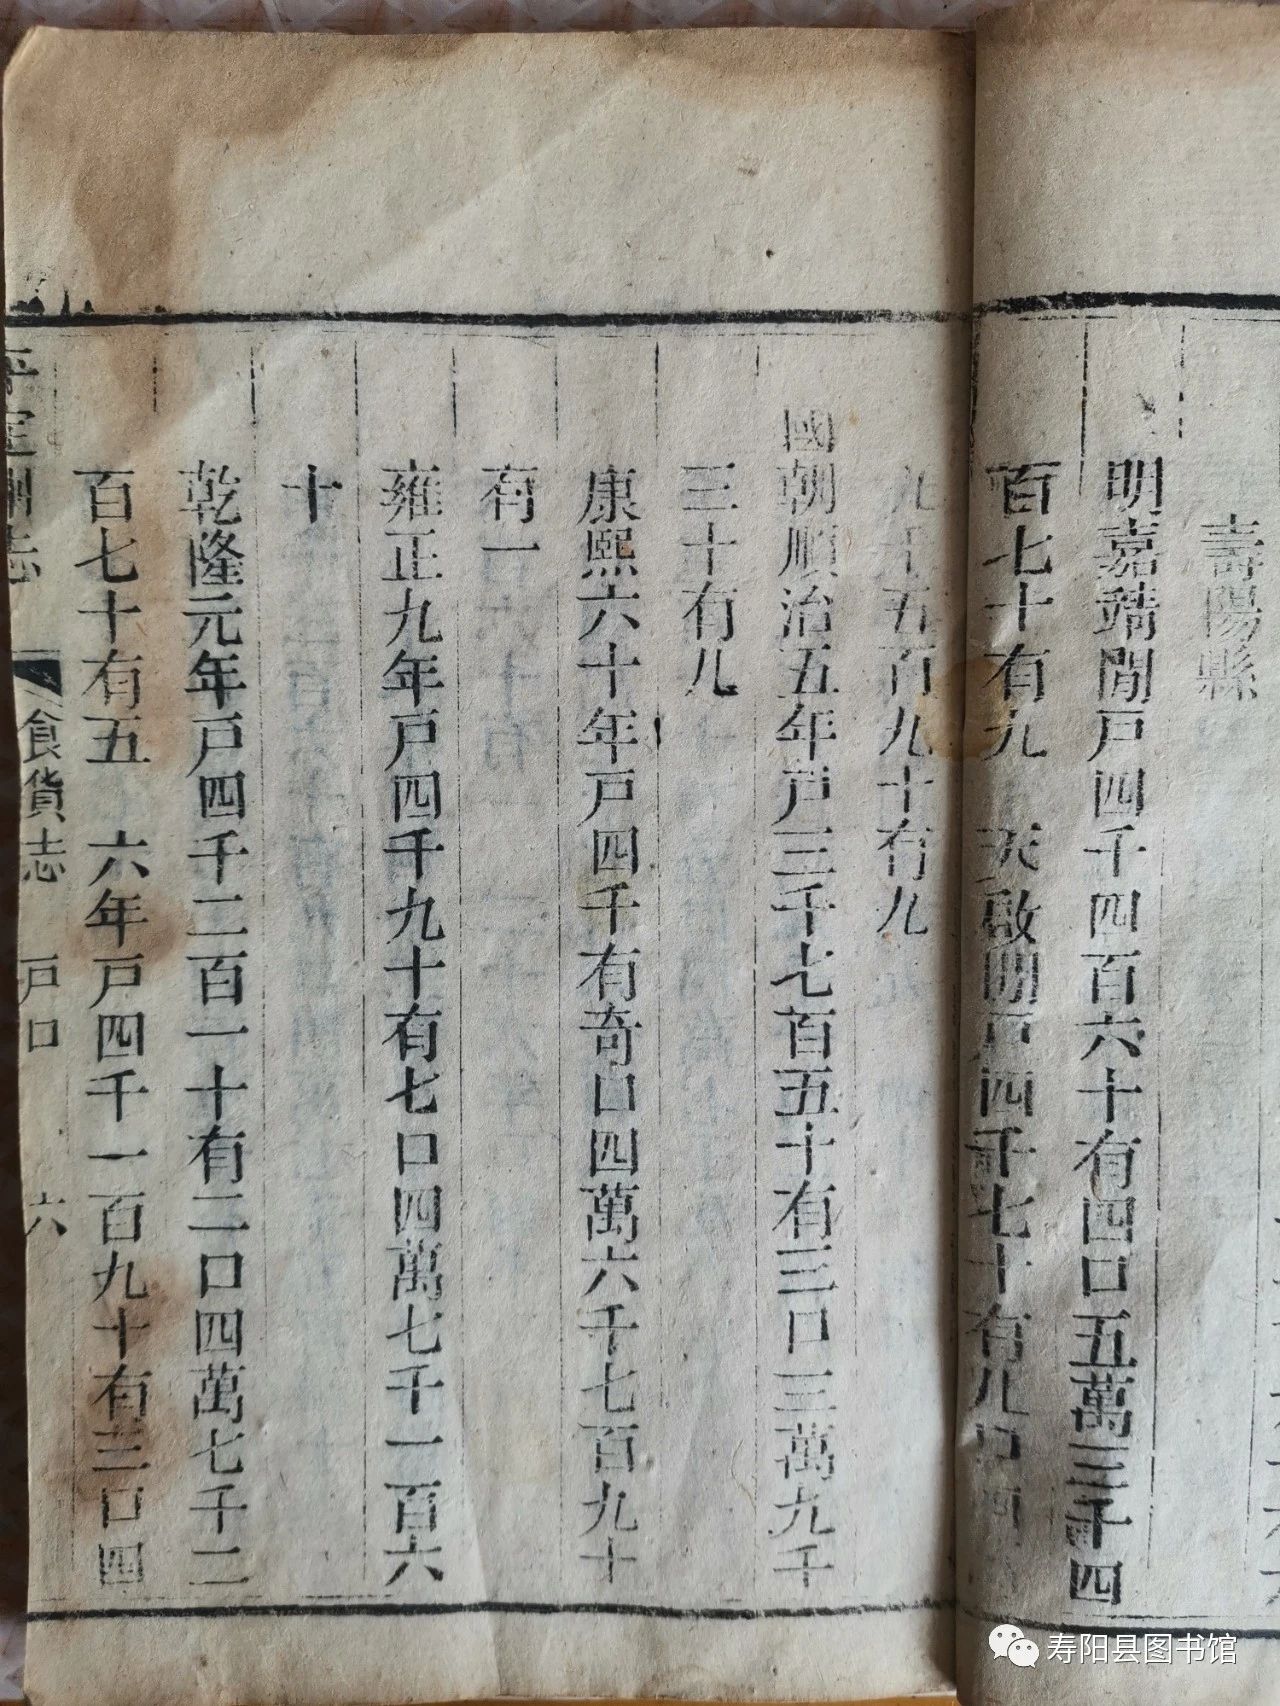 壽陽縣
明嘉靖間戸四千四百六十有四口五萬三千四
百七十有九　天啟間戸四千七十有九口四
九千五百九十有九
國朝順治五年戸三千七百五十有三口三萬九千
三十有九
康熙六十年戸四千有奇口四萬六千七百九十
有一
雍正九年戸四千九十有七口四萬七千一百六
十
乾隆元年戸四千二百一十有二口四萬七千二
百七十有五　六年戸四千一百九十有三口四
平定州志　食貨志　戸口　六
寿阳县图书馆